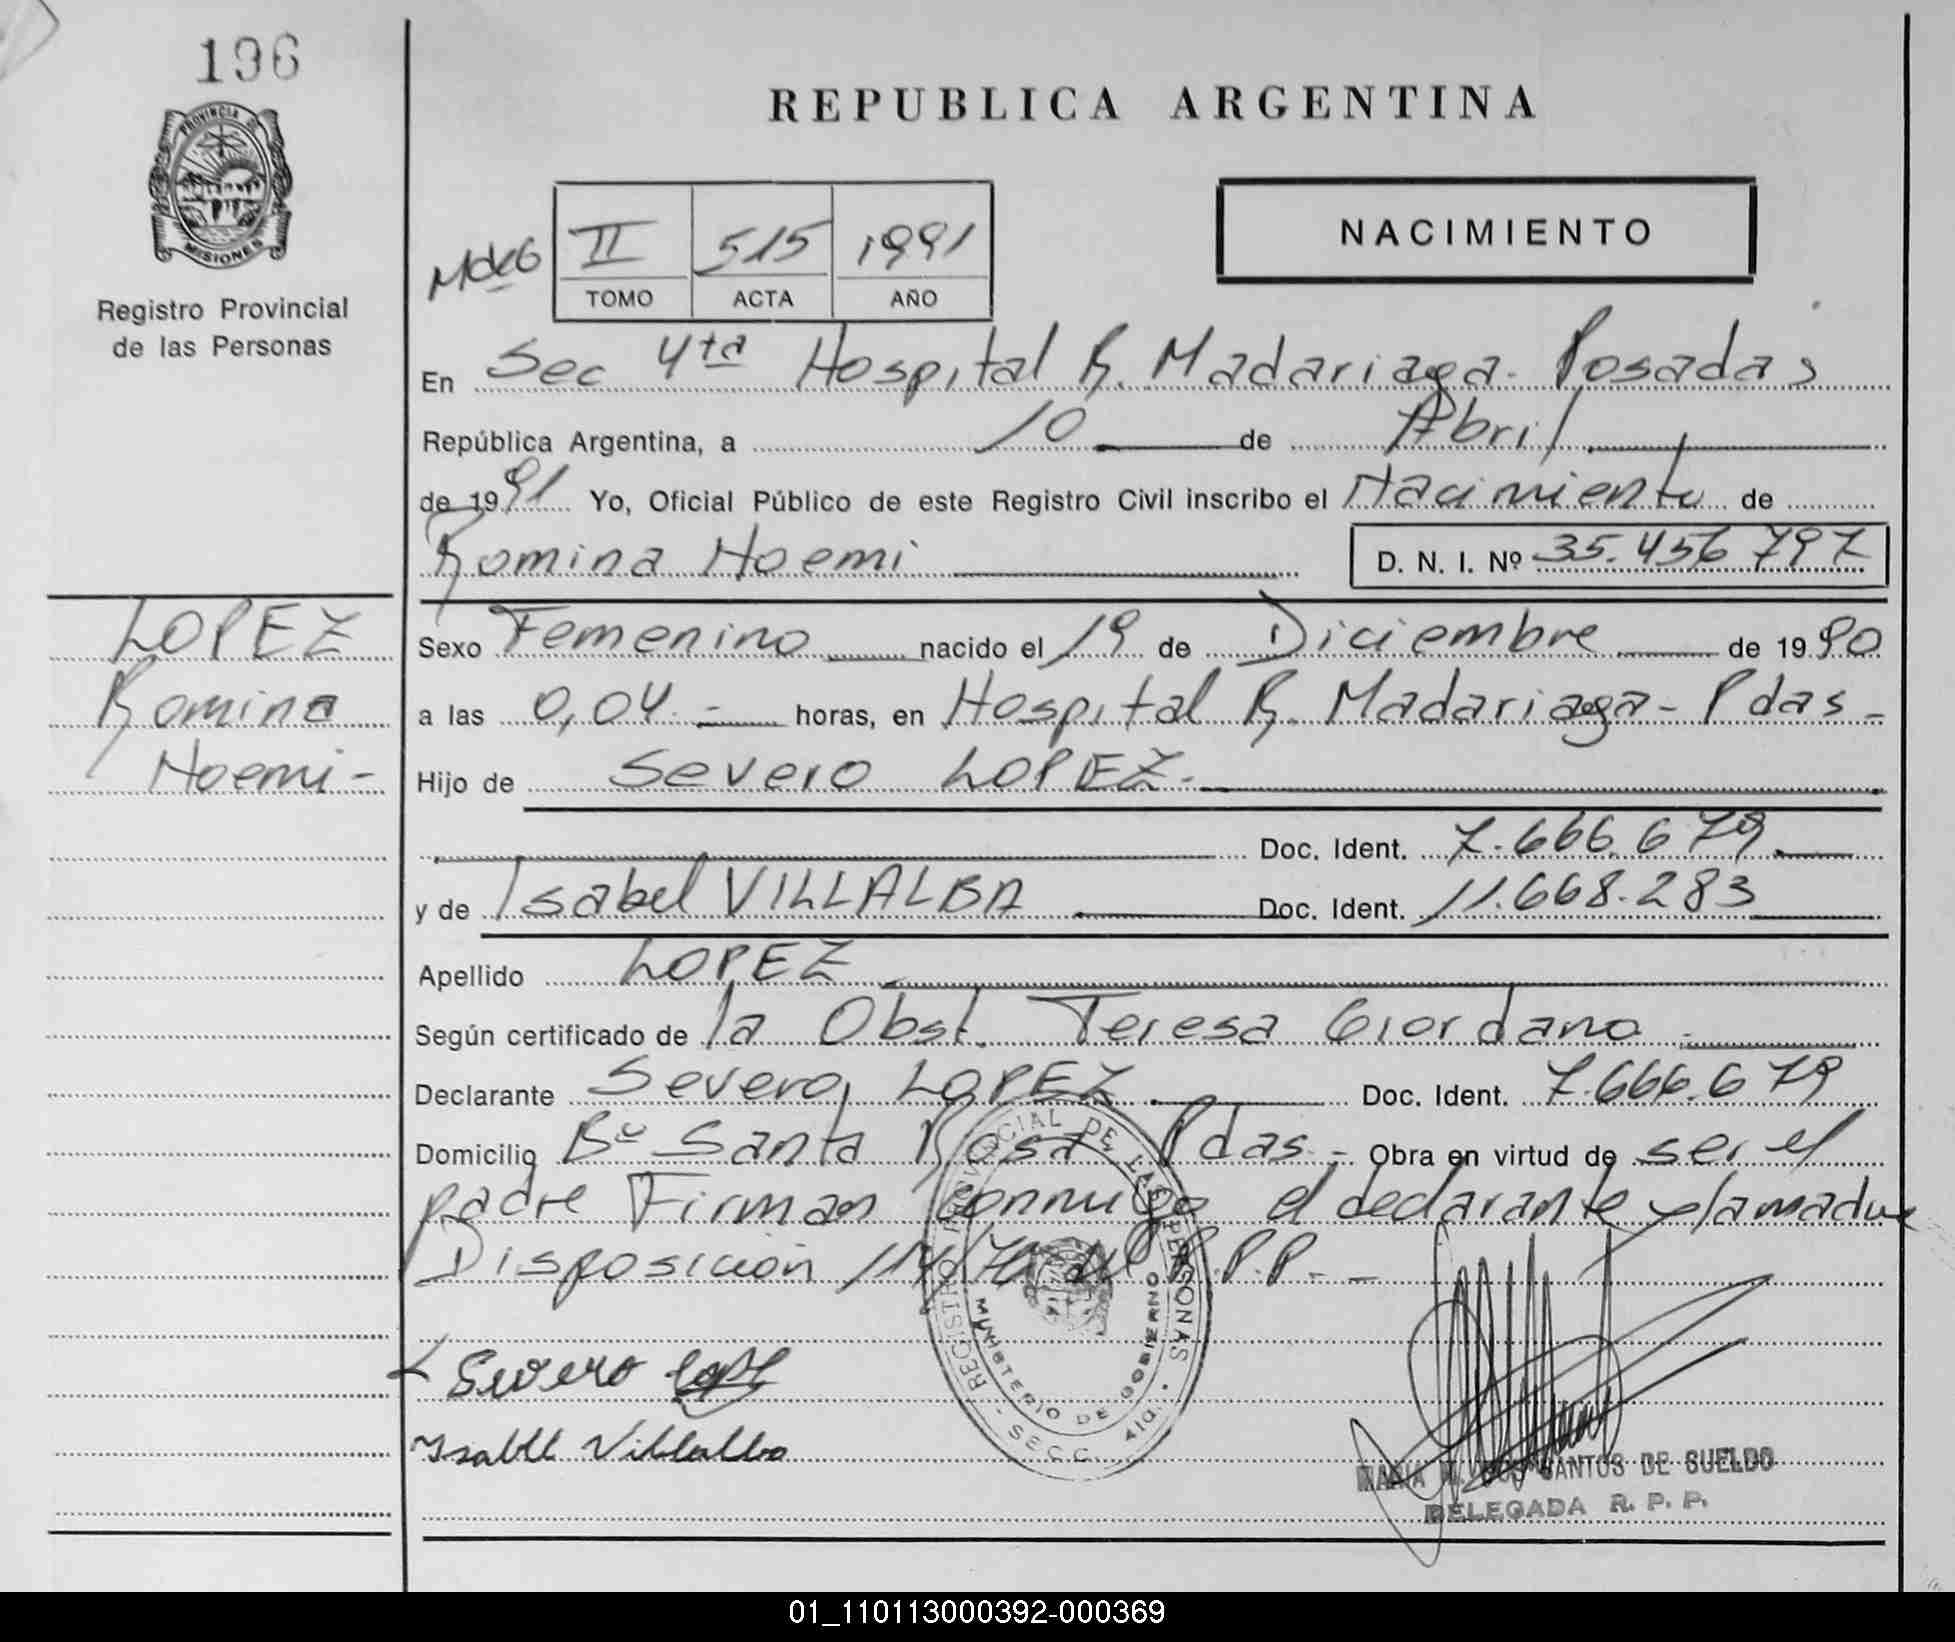 196
PROVINCIA DE
MISIONES
Registro Provincial
de las Personas
REPUBLICA ARGENTINA
NACIMIENTO
II 515 1991
TOMO ACTA AÑO
En Sec 4ta Hospital R. Madariaga - Posadas
República Argentina, a 10 de Abril
de 1991 Yo, Oficial Público de este Registro Civil inscribo el Nacimiento de
Romina Noemi D. N. I. Nº 35.456 797
LOPEZ
Romina
Noemi -
Sexo Femenino nacido el 19 de Diciembre de 1990
a las 0,04.- horas, en Hospital R. Madariaga - Pdas -
Hijo de Severo LOPEZ.
Doc. Ident. 7.666.679
y de Isabel VILLALBA Doc. Ident. 11.668.283
Apellido LOPEZ
Según certificado de la Obst. Teresa Giordano
Declarante Severo LOPEZ Doc. Ident. 7.666.679
Domicilio Bº Santa Rosa Pdas.- Obra en virtud de ser el
padre Firman conmigo el declarante y la madre
Disposición R.P.P. -
REGISTRO PROVINCIAL DE LAS PERSONAS
MINISTERIO DE GOBIERNO
SECC. 4ta.
Severo Lopez
Isabel Villalba
MARIA SANTOS DE SUELDO
DELEGADA R. P. P.
01_110113000392-000369